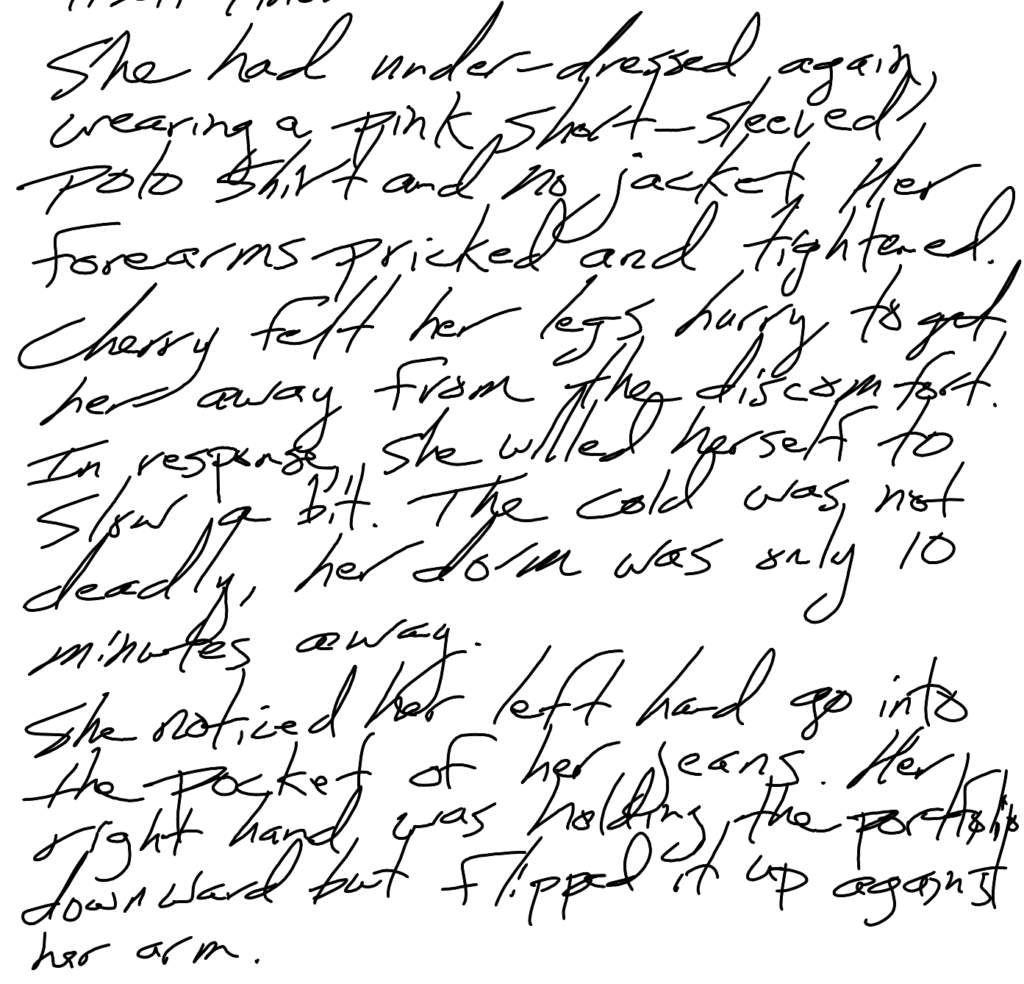 She had under-dressed again,
wearing a pink short-sleeved
polo shirt and no jacket Her
forearms pricked and tightened.
Cherry felt her legs hurry to get
her away from the discomfort.
In response, she willed herself to
slow a bit. The cold was not
deadly, her dorm was only 10
minutes away.
She noticed her left hand go into
the pocket of her jeans. Her
right hand was holding the portfolio
downward but flipped it up against
her arm.